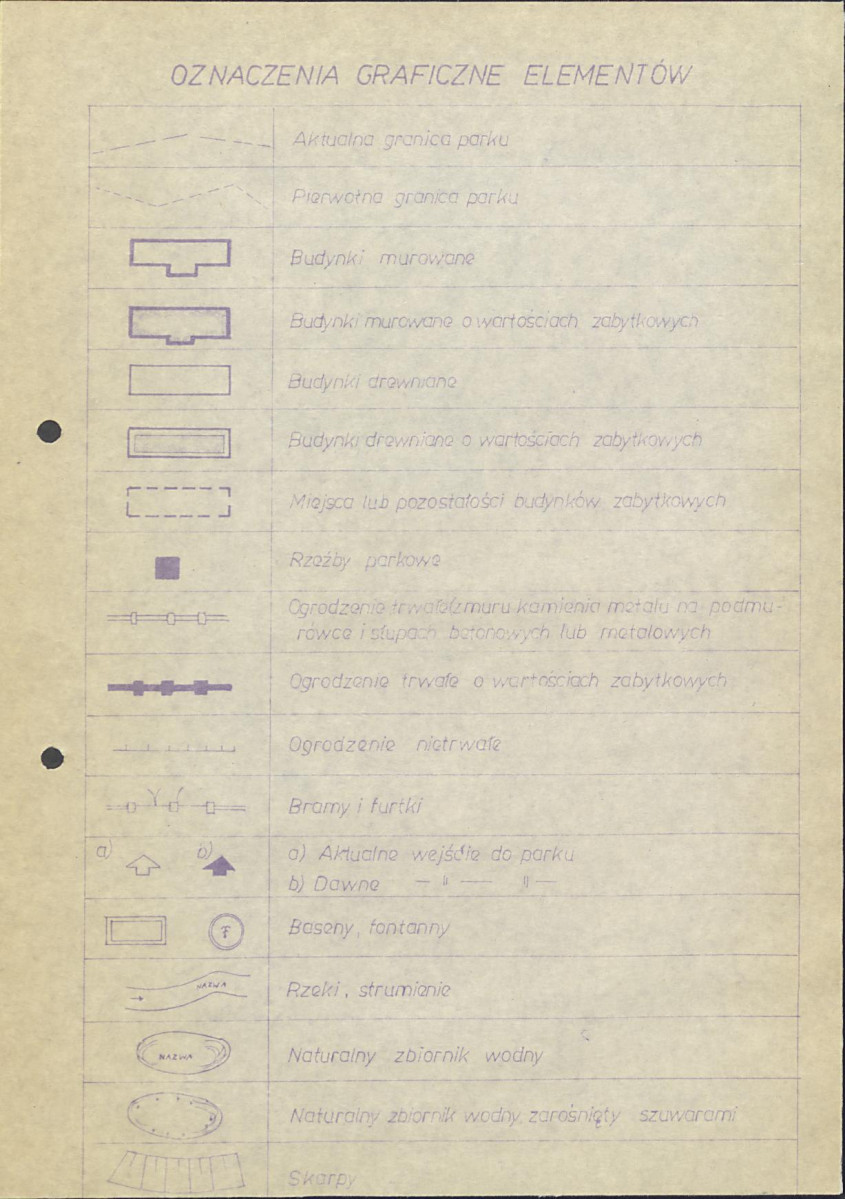 OZNACZENIA GRAFICZNE ELEMENTÓW
Aktualna granica parku
Pierwotna granica parku
Budynki murowane
Budynki murowane o wartościach zabytkowych
Budynki drewniane
Budynki drewniane o wartościach zabytkowych
Miejsca lub pozostałości budynków zabytkowych
Rzeźby parkowe
Ogrodzenie trwałe (z muru kamienia metalu na podmu-
rówce i słupach betonowych lub metalowych
Ogrodzenie trwałe o wartościach zabytkowych
Ogrodzenie nietrwałe
Bramy i furtki
a) b) a) Aktualne wejście do parku
b) Dawne — " — " —
F Baseny, fontanny
NAZWA Rzeki, strumienie
NAZWA Naturalny zbiornik wodny
Naturalny zbiornik wodny, zarośnięty szuwarami
Skarpy